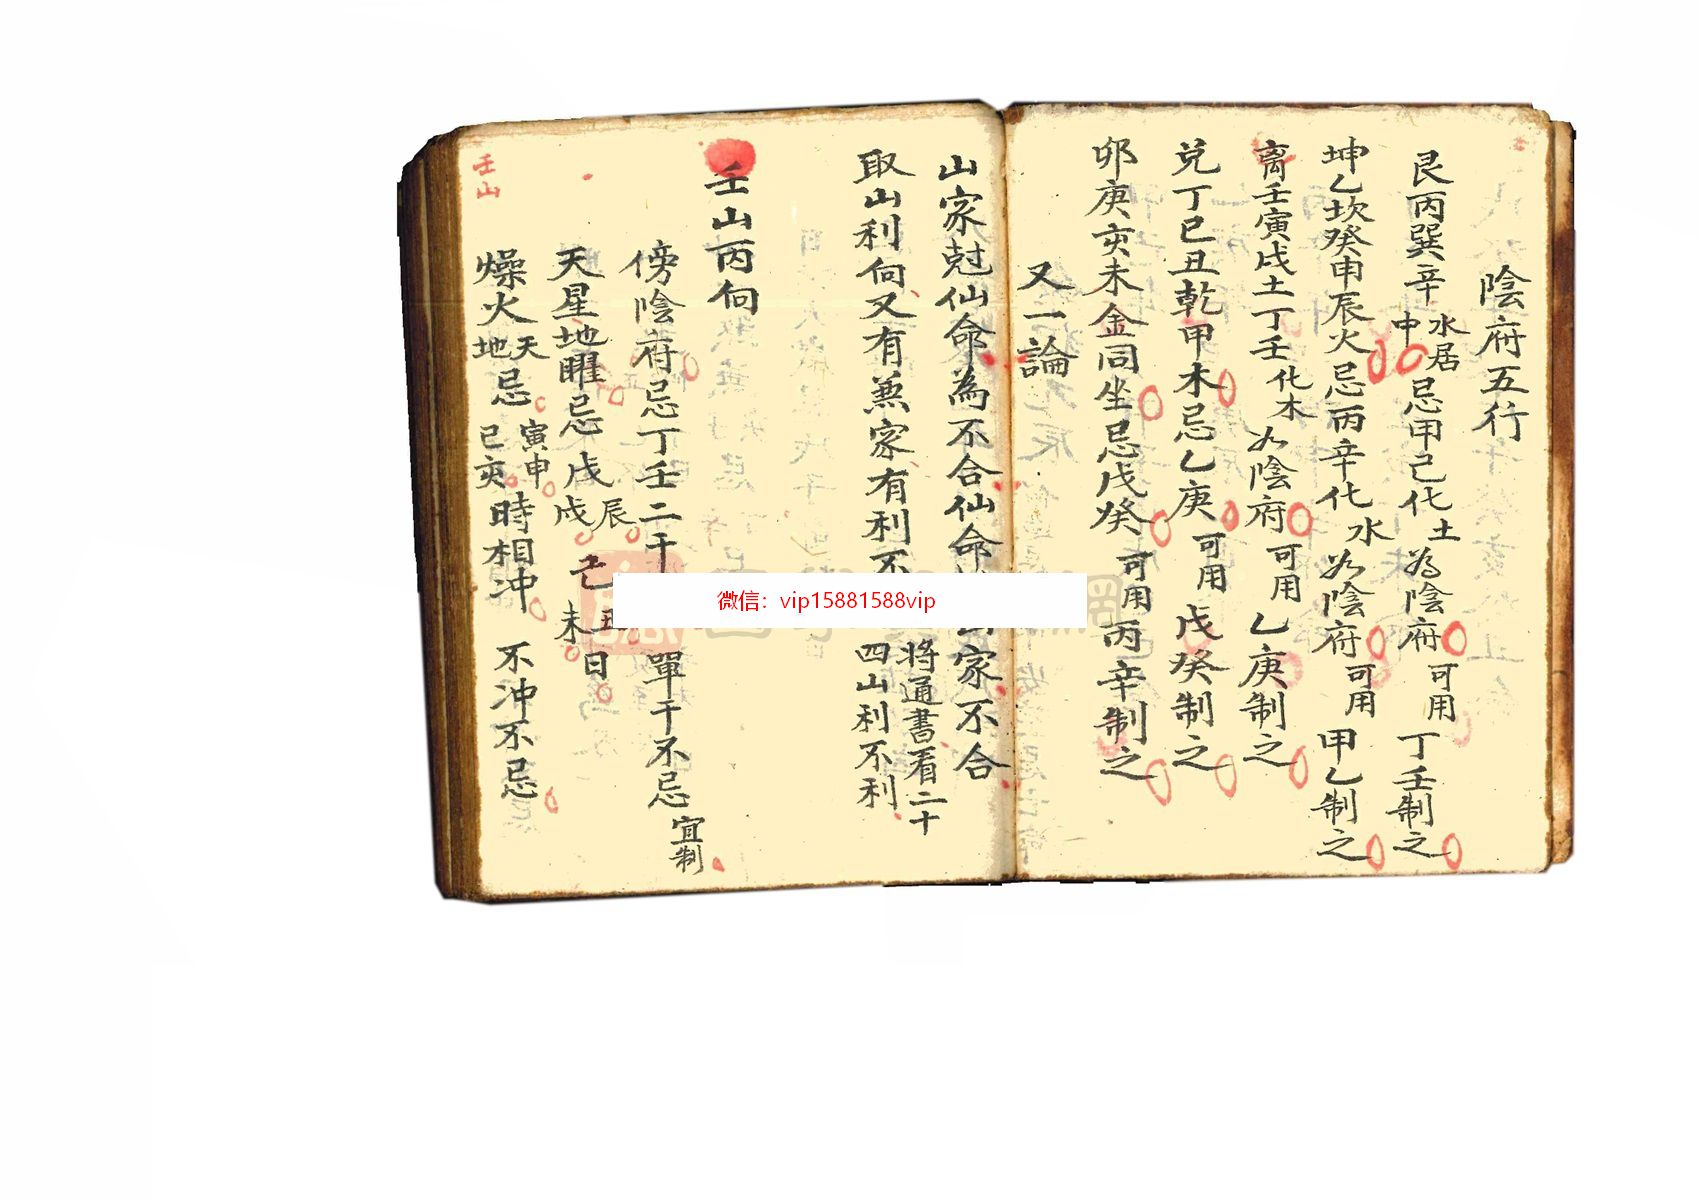 陰府五行
艮丙巽辛水居中忌甲己化土為陰府可用丁壬制之
坤乙坎癸申辰火忌丙辛化水為陰府可用甲乙制之
离壬寅戌土丁壬化木为陰府可用乙庚制之
兌丁巳丑乾甲木忌乙庚可用戊癸制之
卯庚亥未金同坐忌戊癸可用丙辛制之
又一論
山家尅仙命為不合仙命家不合
取山利向又有兼家有利不將通書看二十四山利不利
壬山丙向
傍陰府忌丁壬二干單干不忌宜制
天星地曜忌戊辰戌己丑未日
燥火天地忌寅申巳亥時相冲不冲不忌
壬山
微信：vip15881588vip